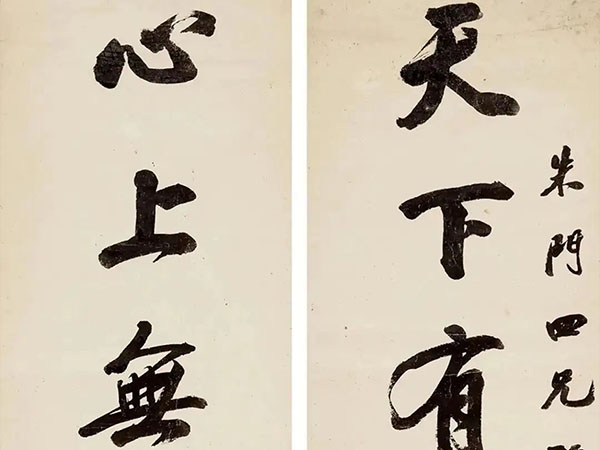 朱門四兄
天下有
心上無